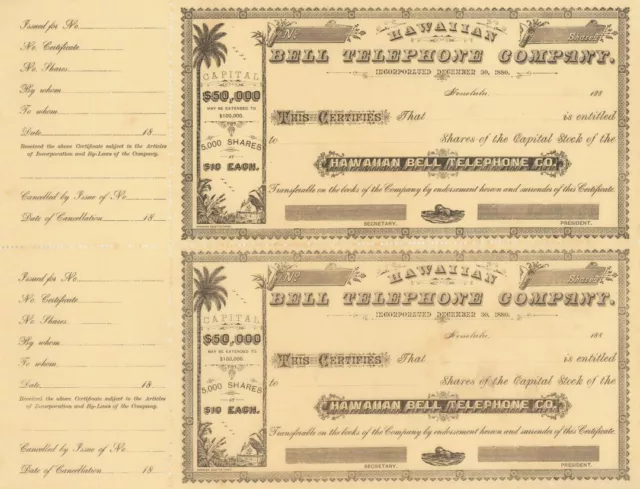 Issued for No.
No. Certificate
No. Shares
By whom
To whom
Date 18
Received the above Certificate subject to the Articles
of Incorporation and By-Laws of the Company.
Cancelled by Issue of No.
Date of Cancellation 18
No. Shares
HAWAIIAN
BELL TELEPHONE COMPANY.
INCORPORATED DECEMBER 30, 1880.
CAPITAL
$50,000
MAY BE EXTENDED TO
$100,000.
5,000 SHARES
AT
$10 EACH.
Honolulu, 188
THIS CERTIFIES That is entitled
to Shares of the Capital Stock of the
HAWAIIAN BELL TELEPHONE CO.
Transferable on the books of the Company by endorsement hereon and surrender of this Certificate.
SECRETARY. PRESIDENT.
Issued for No.
No. Certificate
No. Shares
By whom
To whom
Date 18
Received the above Certificate subject to the Articles
of Incorporation and By-Laws of the Company.
Cancelled by Issue of No.
Date of Cancellation 18
No. Shares
HAWAIIAN
BELL TELEPHONE COMPANY.
INCORPORATED DECEMBER 30, 1880.
CAPITAL
$50,000
MAY BE EXTENDED TO
$100,000.
5,000 SHARES
AT
$10 EACH.
Honolulu, 188
THIS CERTIFIES That is entitled
to Shares of the Capital Stock of the
HAWAIIAN BELL TELEPHONE CO.
Transferable on the books of the Company by endorsement hereon and surrender of this Certificate.
SECRETARY. PRESIDENT.